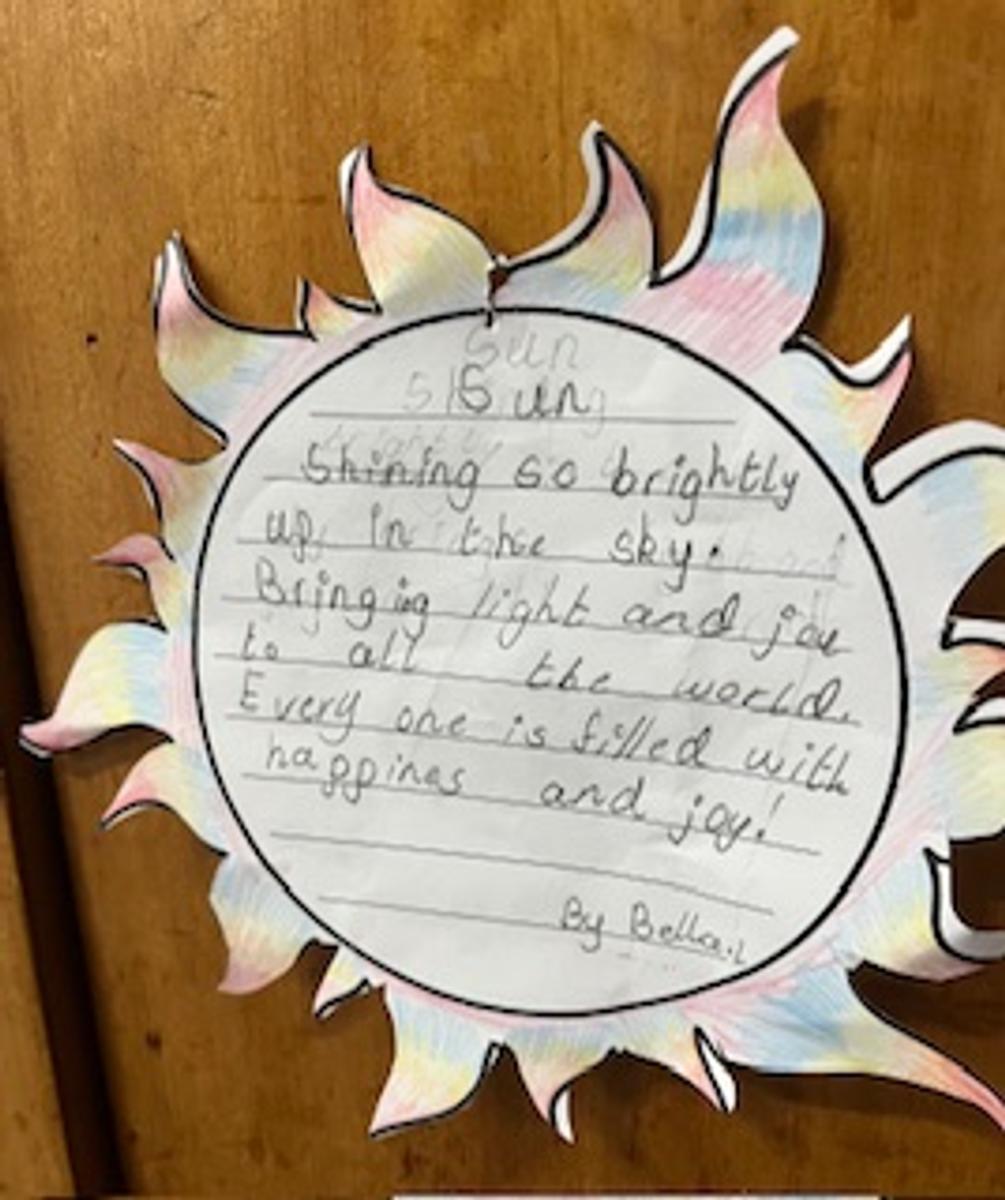 Sun
Sun
Shining so brightly
up in the sky.
Bringing light and joy
to all the world.
Every one is filled with
happines and joy!
By Bella.L